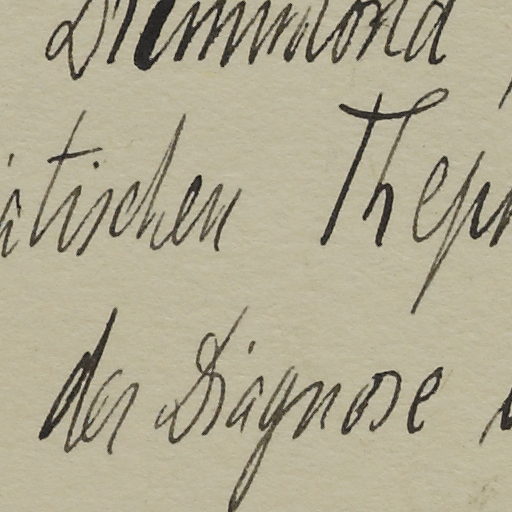 Drummond
tischen
der Diagnose